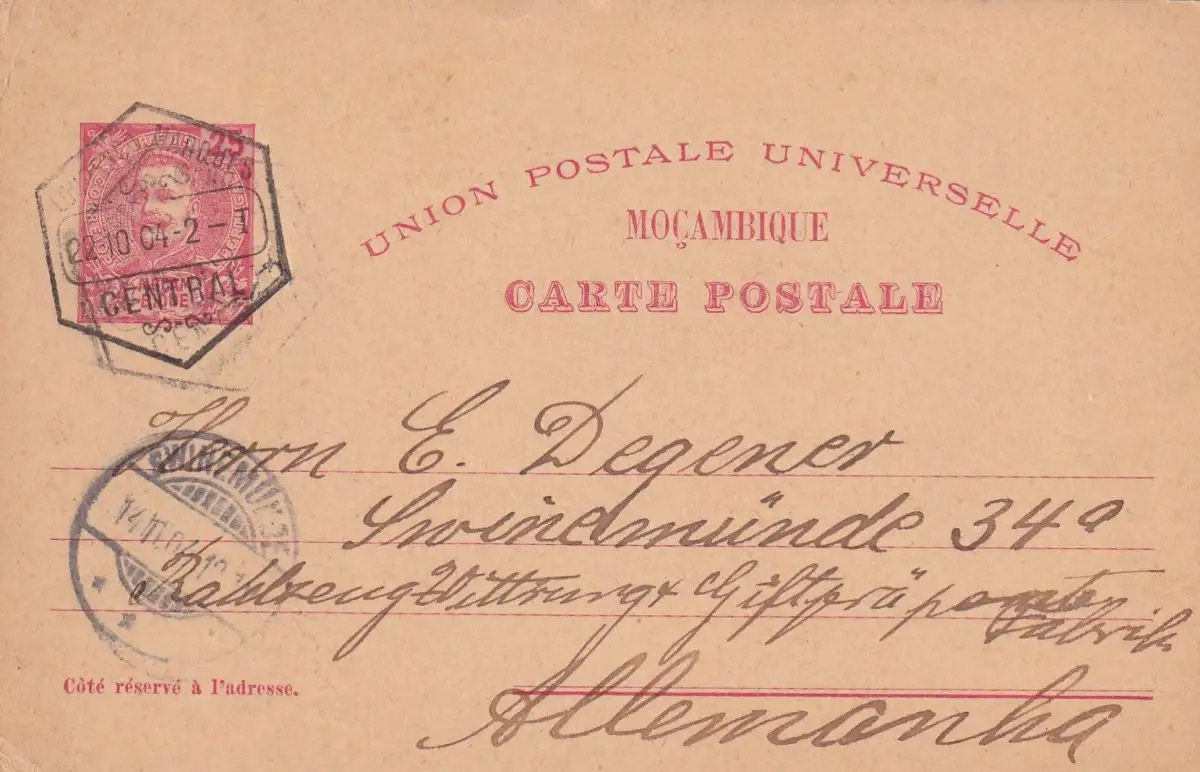 UNION POSTALE UNIVERSELLE
MOÇAMBIQUE
CARTE POSTALE
25
MARQUES
22 10 04-2-T
CENTRAL
Herrn E. Degener
Swinemünde 34a
SWINEMÜNDE
14.11.04
Witterung & Giftpräparate
Fabrik
Côté réservé à l'adresse.
Allemanha